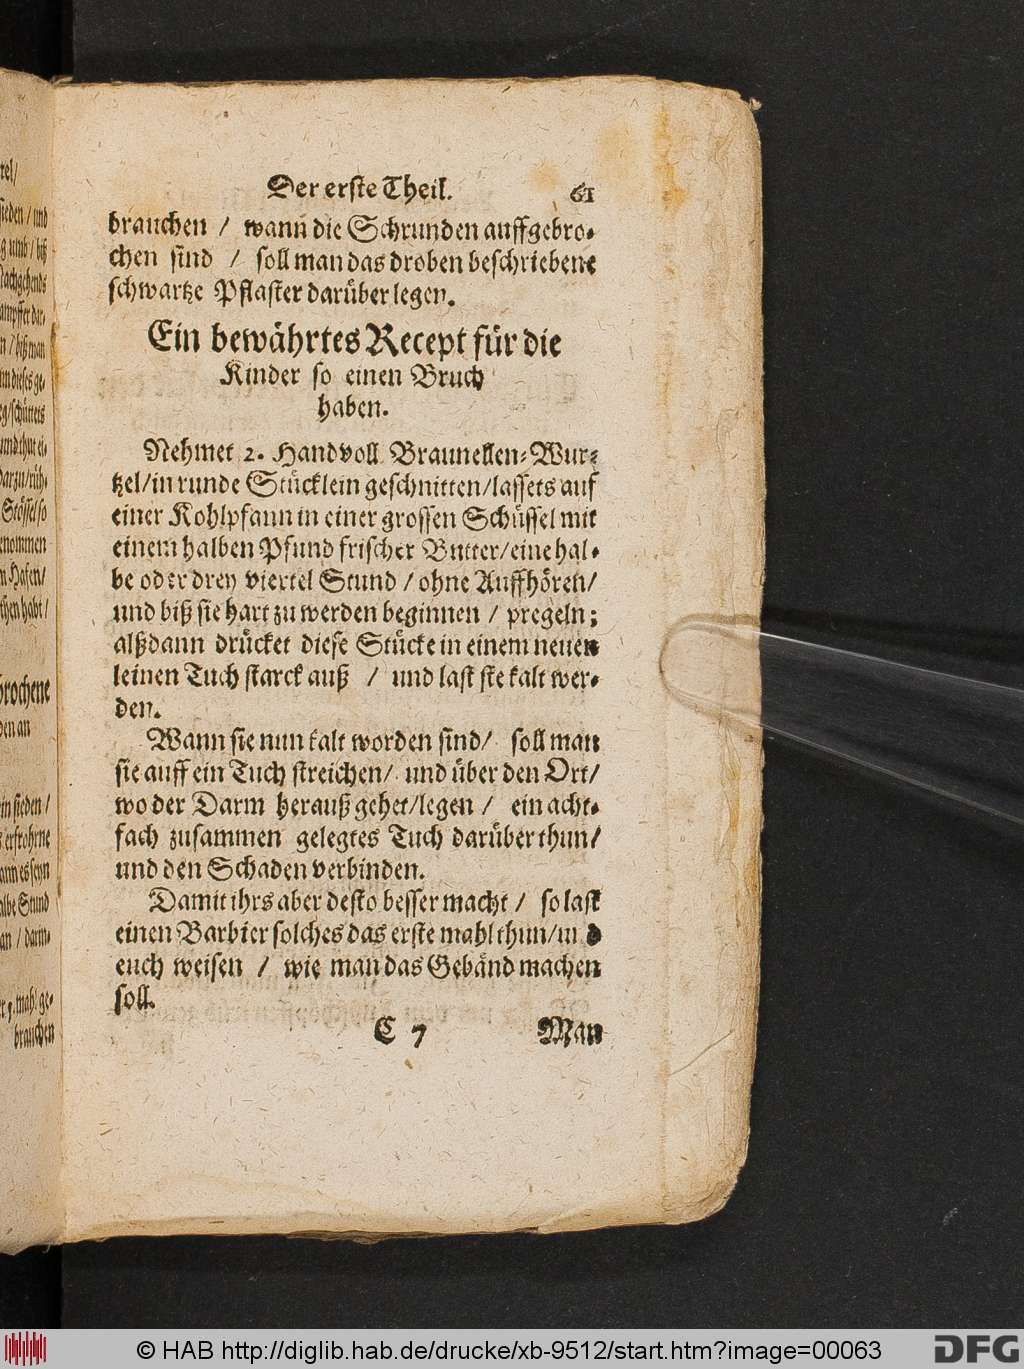 Der erste Theil. 61
brauchen / wann die Schrunden auffgebro-
chen sind / soll man das droben beschriebene
schwartze Pflaster darüber legen.
Ein bewährtes Recept für die
Kinder so einen Bruch
haben.
Nehmet 2. Handvoll Braunellen-Wur-
tzel/in runde Stücklein geschnitten/lassets auf
einer Kohlpfann in einer grossen Schüssel mit
einem halben Pfund frischer Butter/eine hal-
be oder drey viertel Stund / ohne Auffhören/
und biß sie hart zu werden beginnen / pregeln;
alßdann drücket diese Stücke in einem neuen
leinen Tuch starck auß / und last ste kalt wer-
den.
Wann sie nun kalt worden sind/ soll man
sie auff ein Tuch streichen/ und über den Ort/
wo der Darm herauß gehet/legen / ein acht-
fach zusammen gelegtes Tuch darüber thun/
und den Schaden verbinden.
Damit ihrs aber desto besser macht / so last
einen Barbier solches das erste mahl thun/und
euch weisen / wie man das Gebänd machen
soll.
C 7 Man
rel/
sieden / und
nachgehends
n / biß man
Stössel so
genommen
n Hafen/
brochene
den an
in sieden /
erfrohrne
albe Stund
an / darm-
brauchen
© HAB http://diglib.hab.de/drucke/xb-9512/start.htm?image=00063
DFG